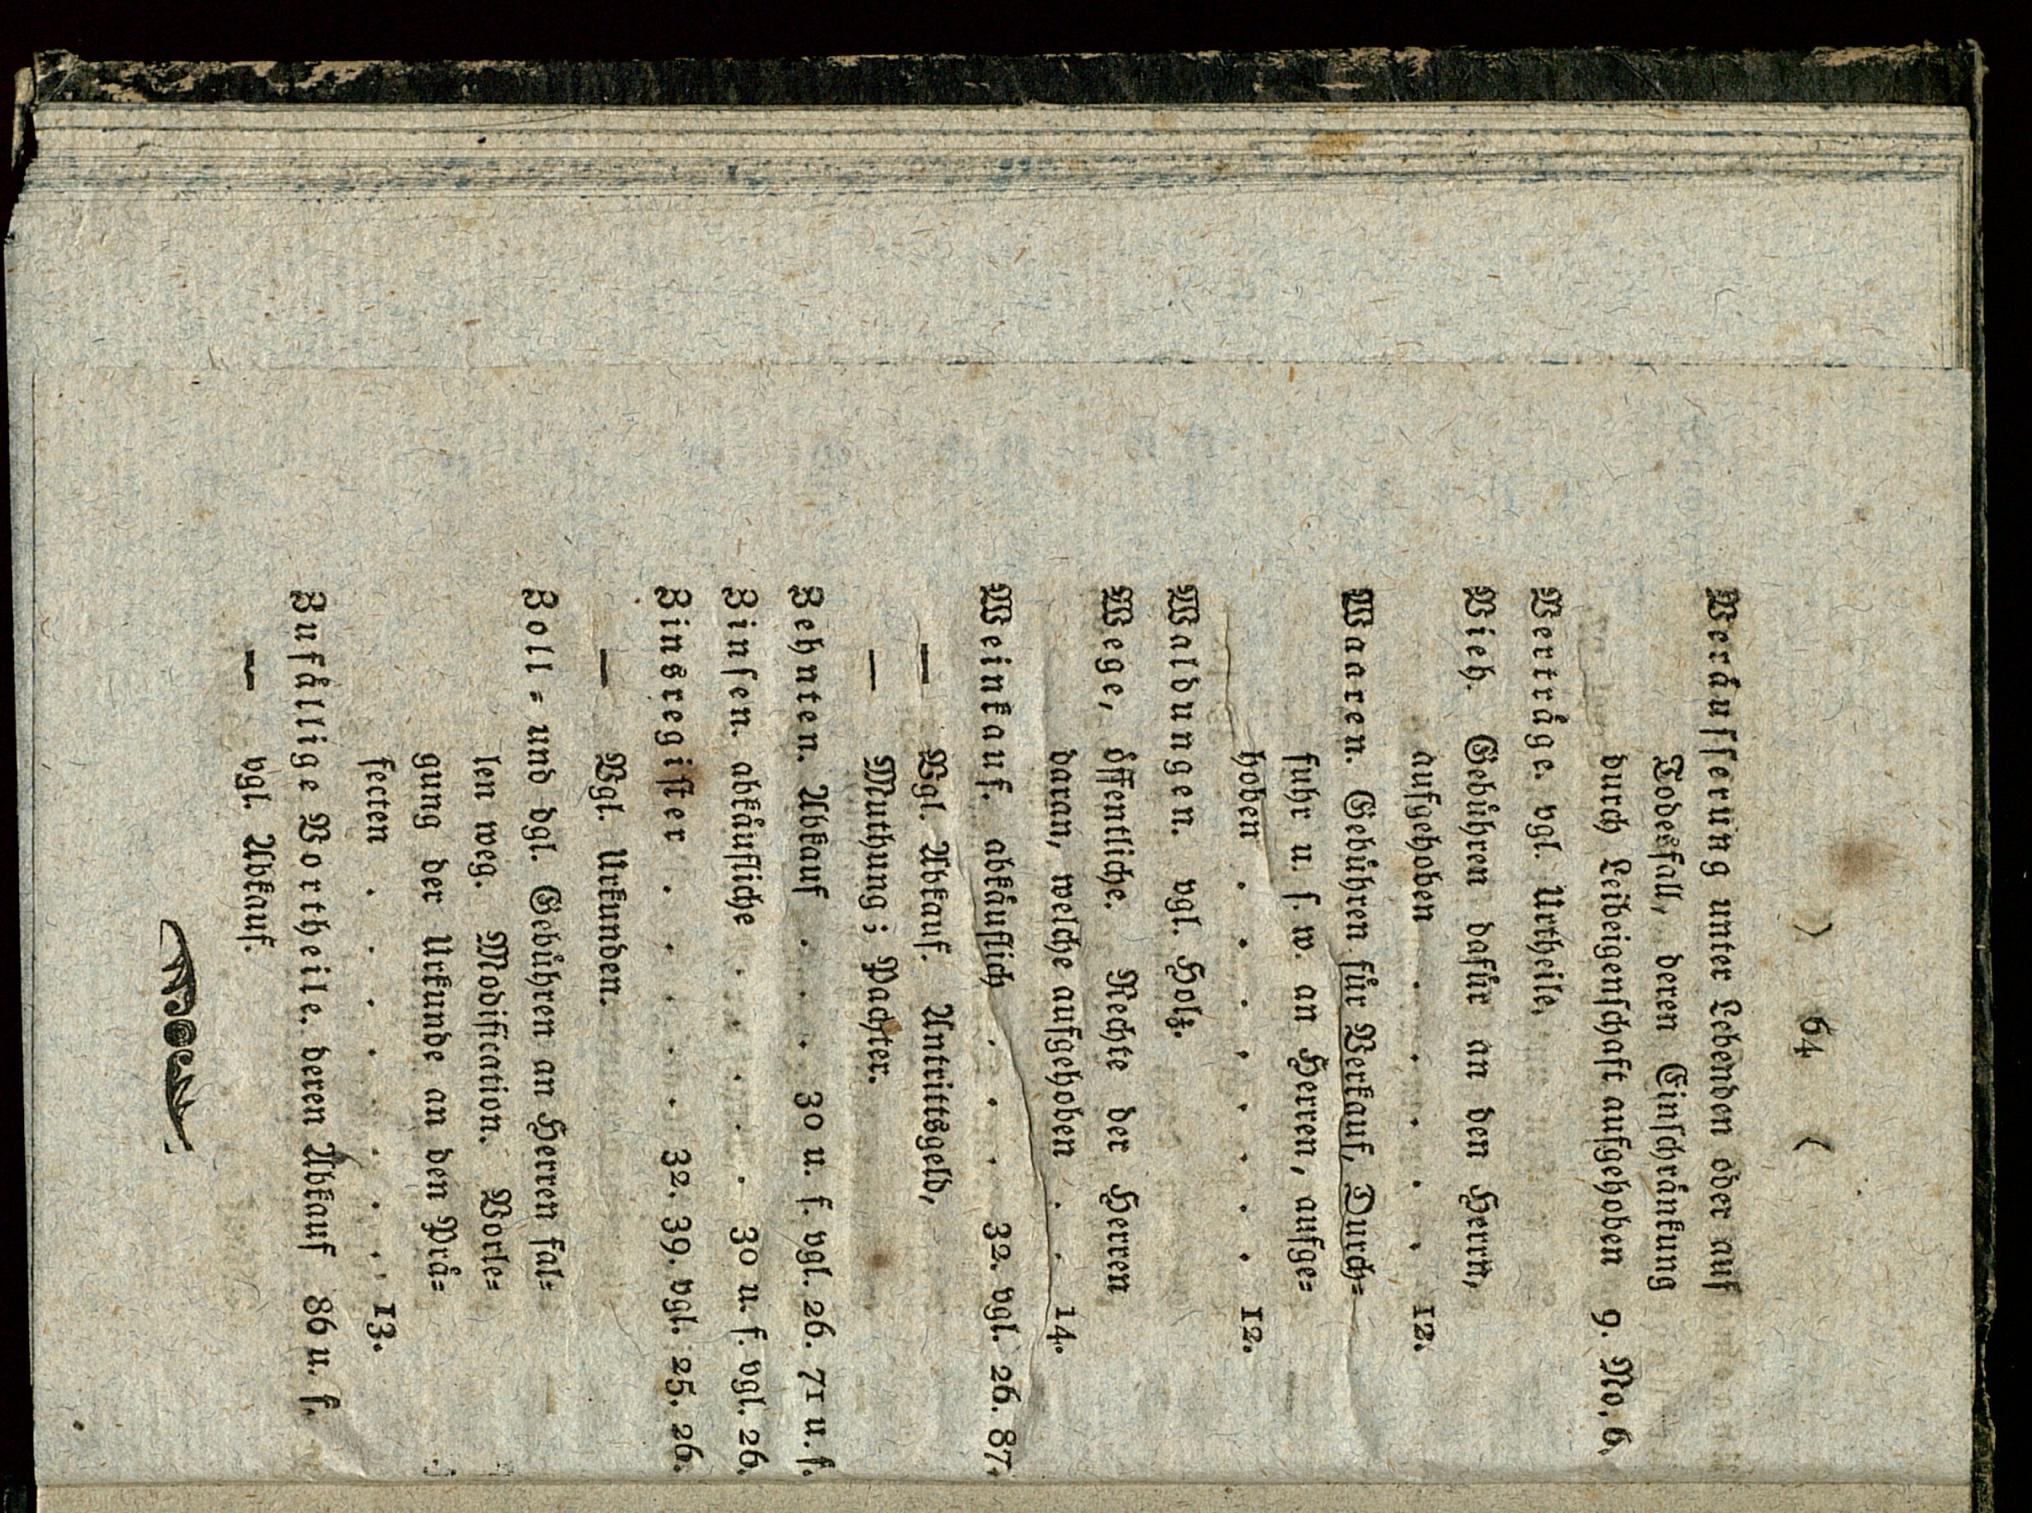 ) 64 (
Veräusserung unter Lebenden oder auf
Todesfall, deren Einschränkung
durch Leibeigenschaft aufgehoben 9. No. 6.
Verträge. vgl. Urtheile.
Vieh. Gebühren dafür an den Herrn,
aufgehoben . . . . . 12.
Waaren. Gebühren für Verkauf, Durch=
fuhr u. s. w. an Herren, aufge=
hoben . . . . . . . 12.
Waldungen. vgl. Holz.
Wege, öffentliche. Rechte der Herren
daran, welche aufgehoben . . 14.
Weinkauf. abkäuflich . . . 32. vgl. 26. 87.
— Vgl. Abkauf. Antrittsgeld,
— Muthung; Pachter.
Zehnten. Abkauf . . . 30 u. f. vgl. 26. 71 u. f.
Zinsen. abkäufliche . . . . . 30 u. f. vgl. 26.
Zinsregister . . . . . 32. 39. vgl. 25. 26.
— Vgl. Urkunden.
Zoll= und dgl. Gebühren an Herren fal=
len weg. Modification. Vorle=
gung der Urkunde an den Prä=
fecten . . . . . . . . 13.
Zufällige Vortheile. deren Abkauf 86 u. f.
— vgl. Abkauf.